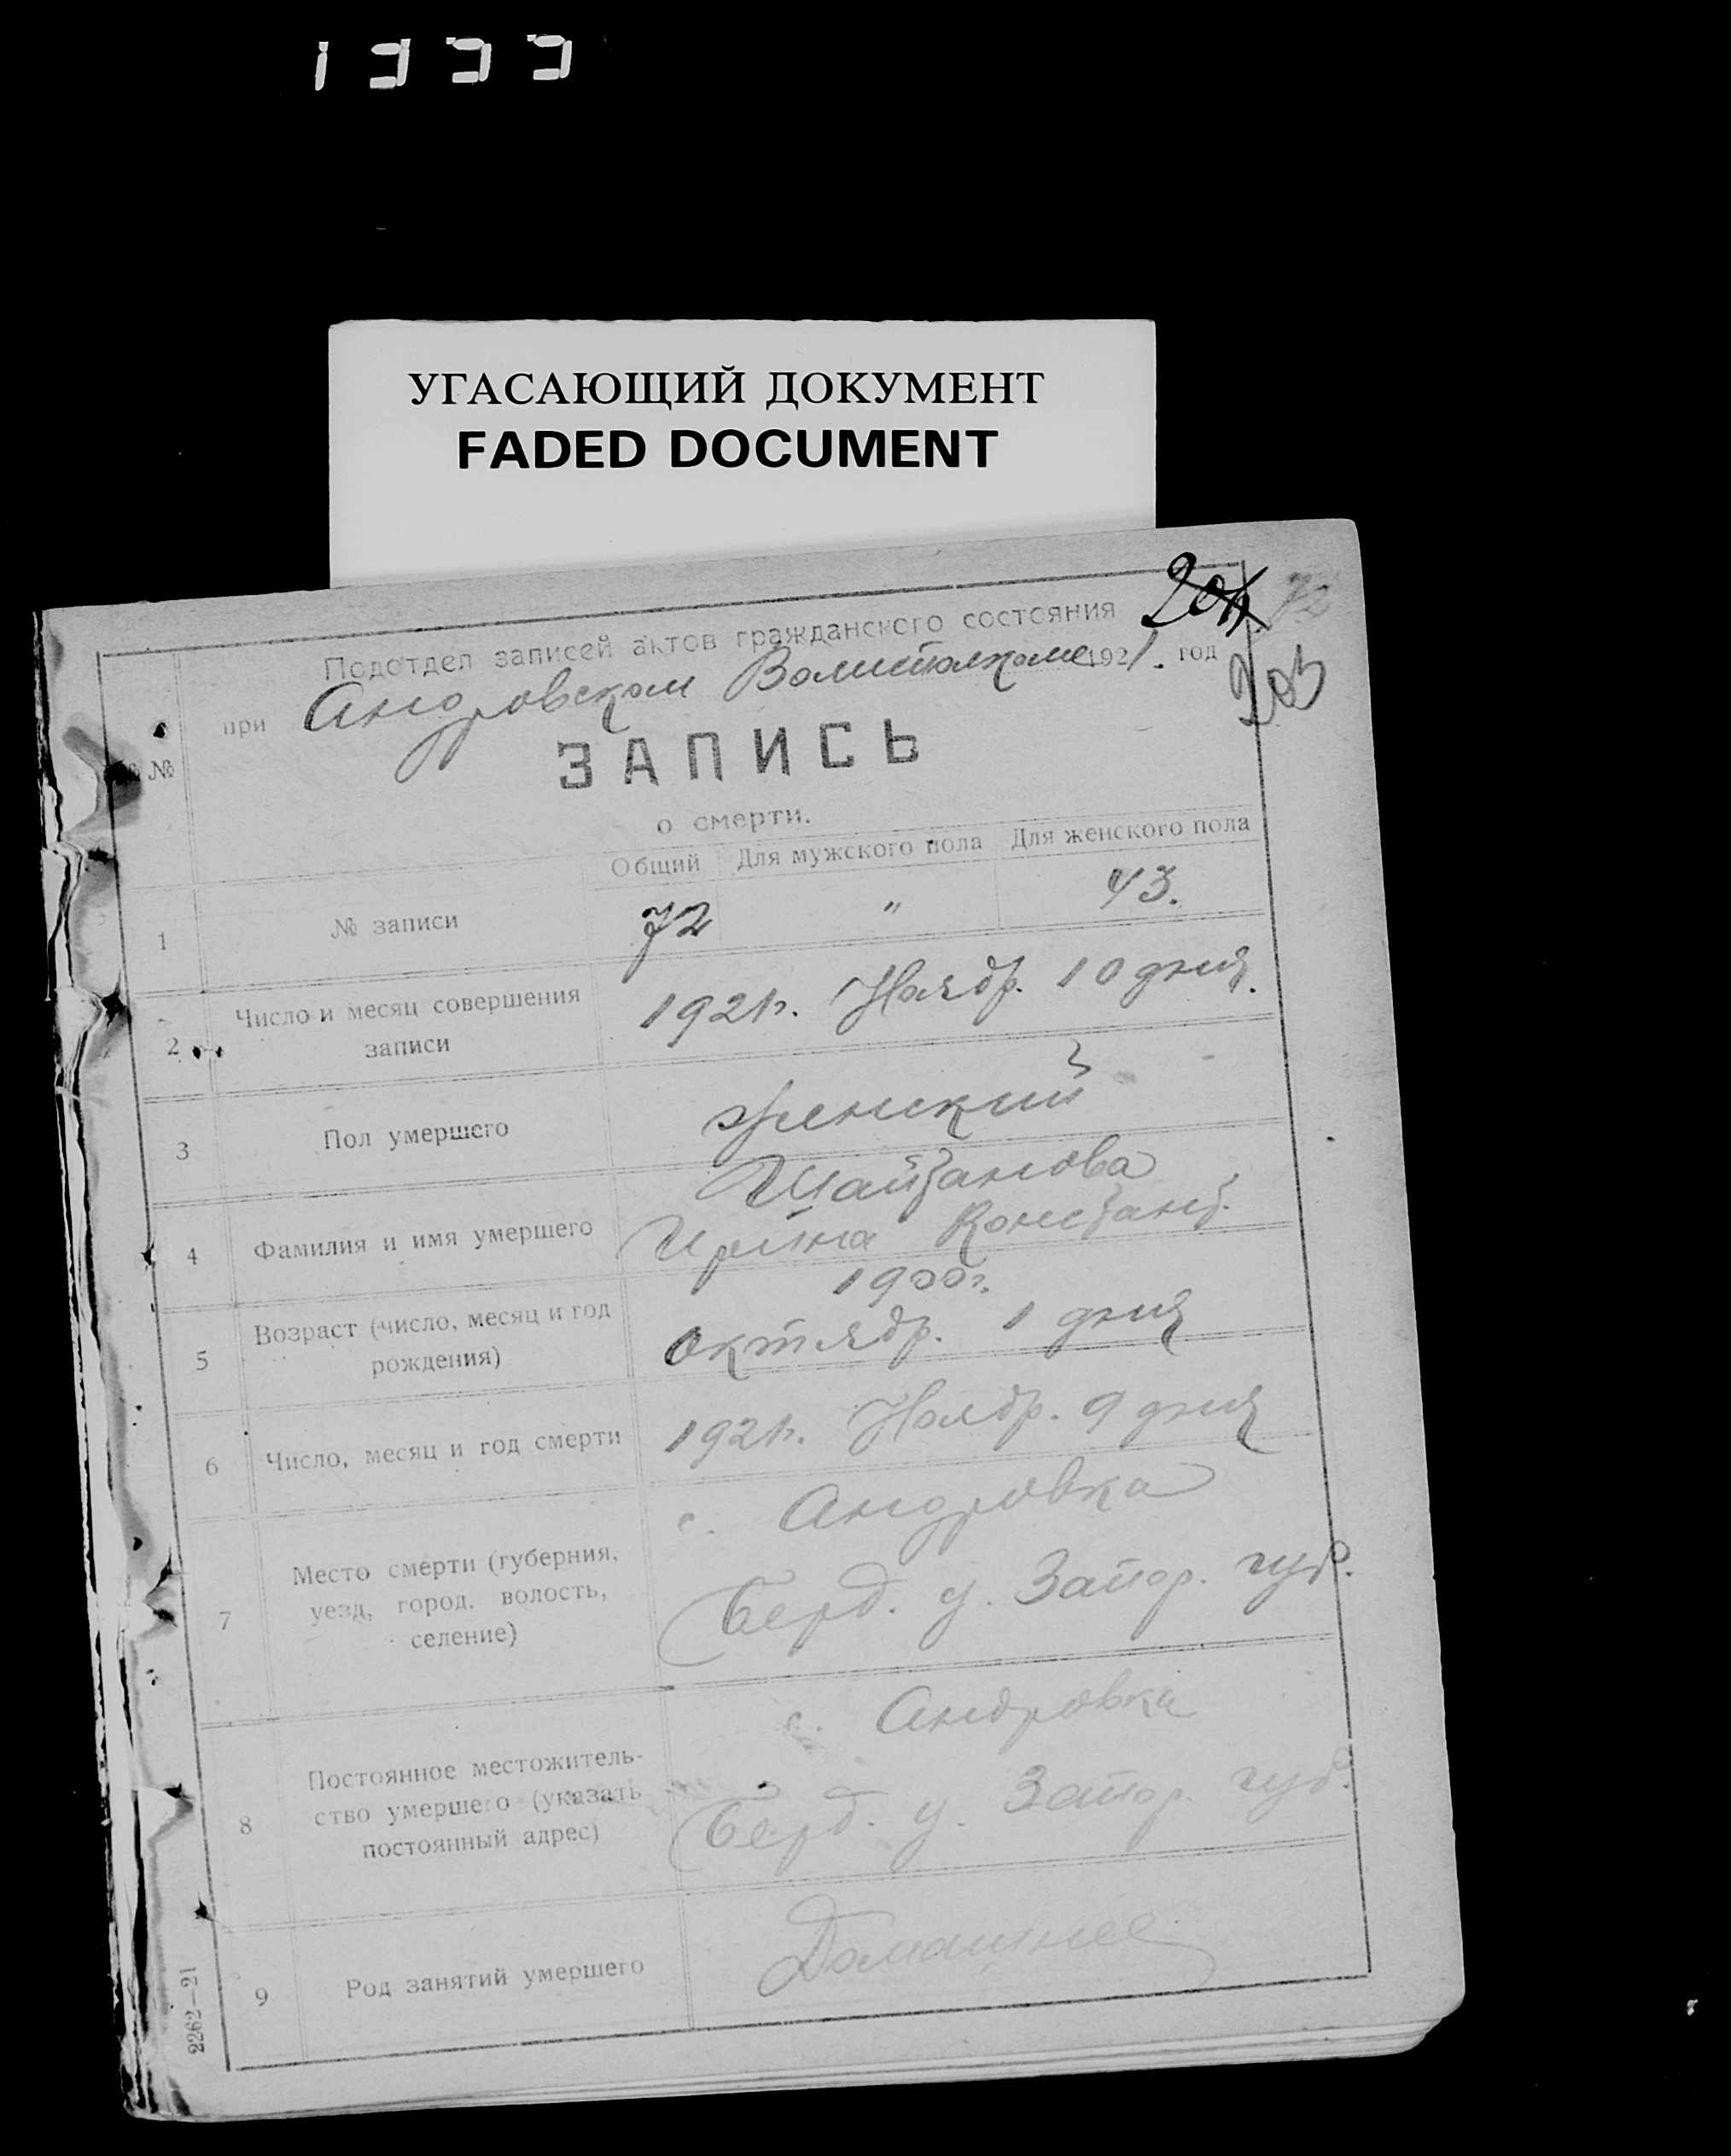 УГАСАЮЩИЙ ДОКУМЕНТ
FADED DOCUMENT
204 72
203
Подотдел записей актов гражданского состояния
при Андровском Волисполкоме 1921. год
№ №
ЗАПИСЬ
о смерти.
Общий Для мужского пола Для женского пола
1 № записи 72 " 43.
2 Число и месяц совершения
записи
1921г. Ноябр. 10 дня.
3 Пол умершего женский
4 Фамилия и имя умершего
Ирина Констант.
1900г.
5 Возраст (число, месяц и год
рождения)
Октябр. 1 дня
6 Число, месяц и год смерти 1921г. Ноябр. 9 дня
7 Место смерти (губерния,
уезд, город, волость,
селение)
с. Андровка
Берд. у. Запор. губ.
8 Постоянное местожитель-
ство умершего (указать
постоянный адрес)
с. Андровка
Берд. у. Запор. губ.
9 Род занятий умершего Домашнее
2262—21